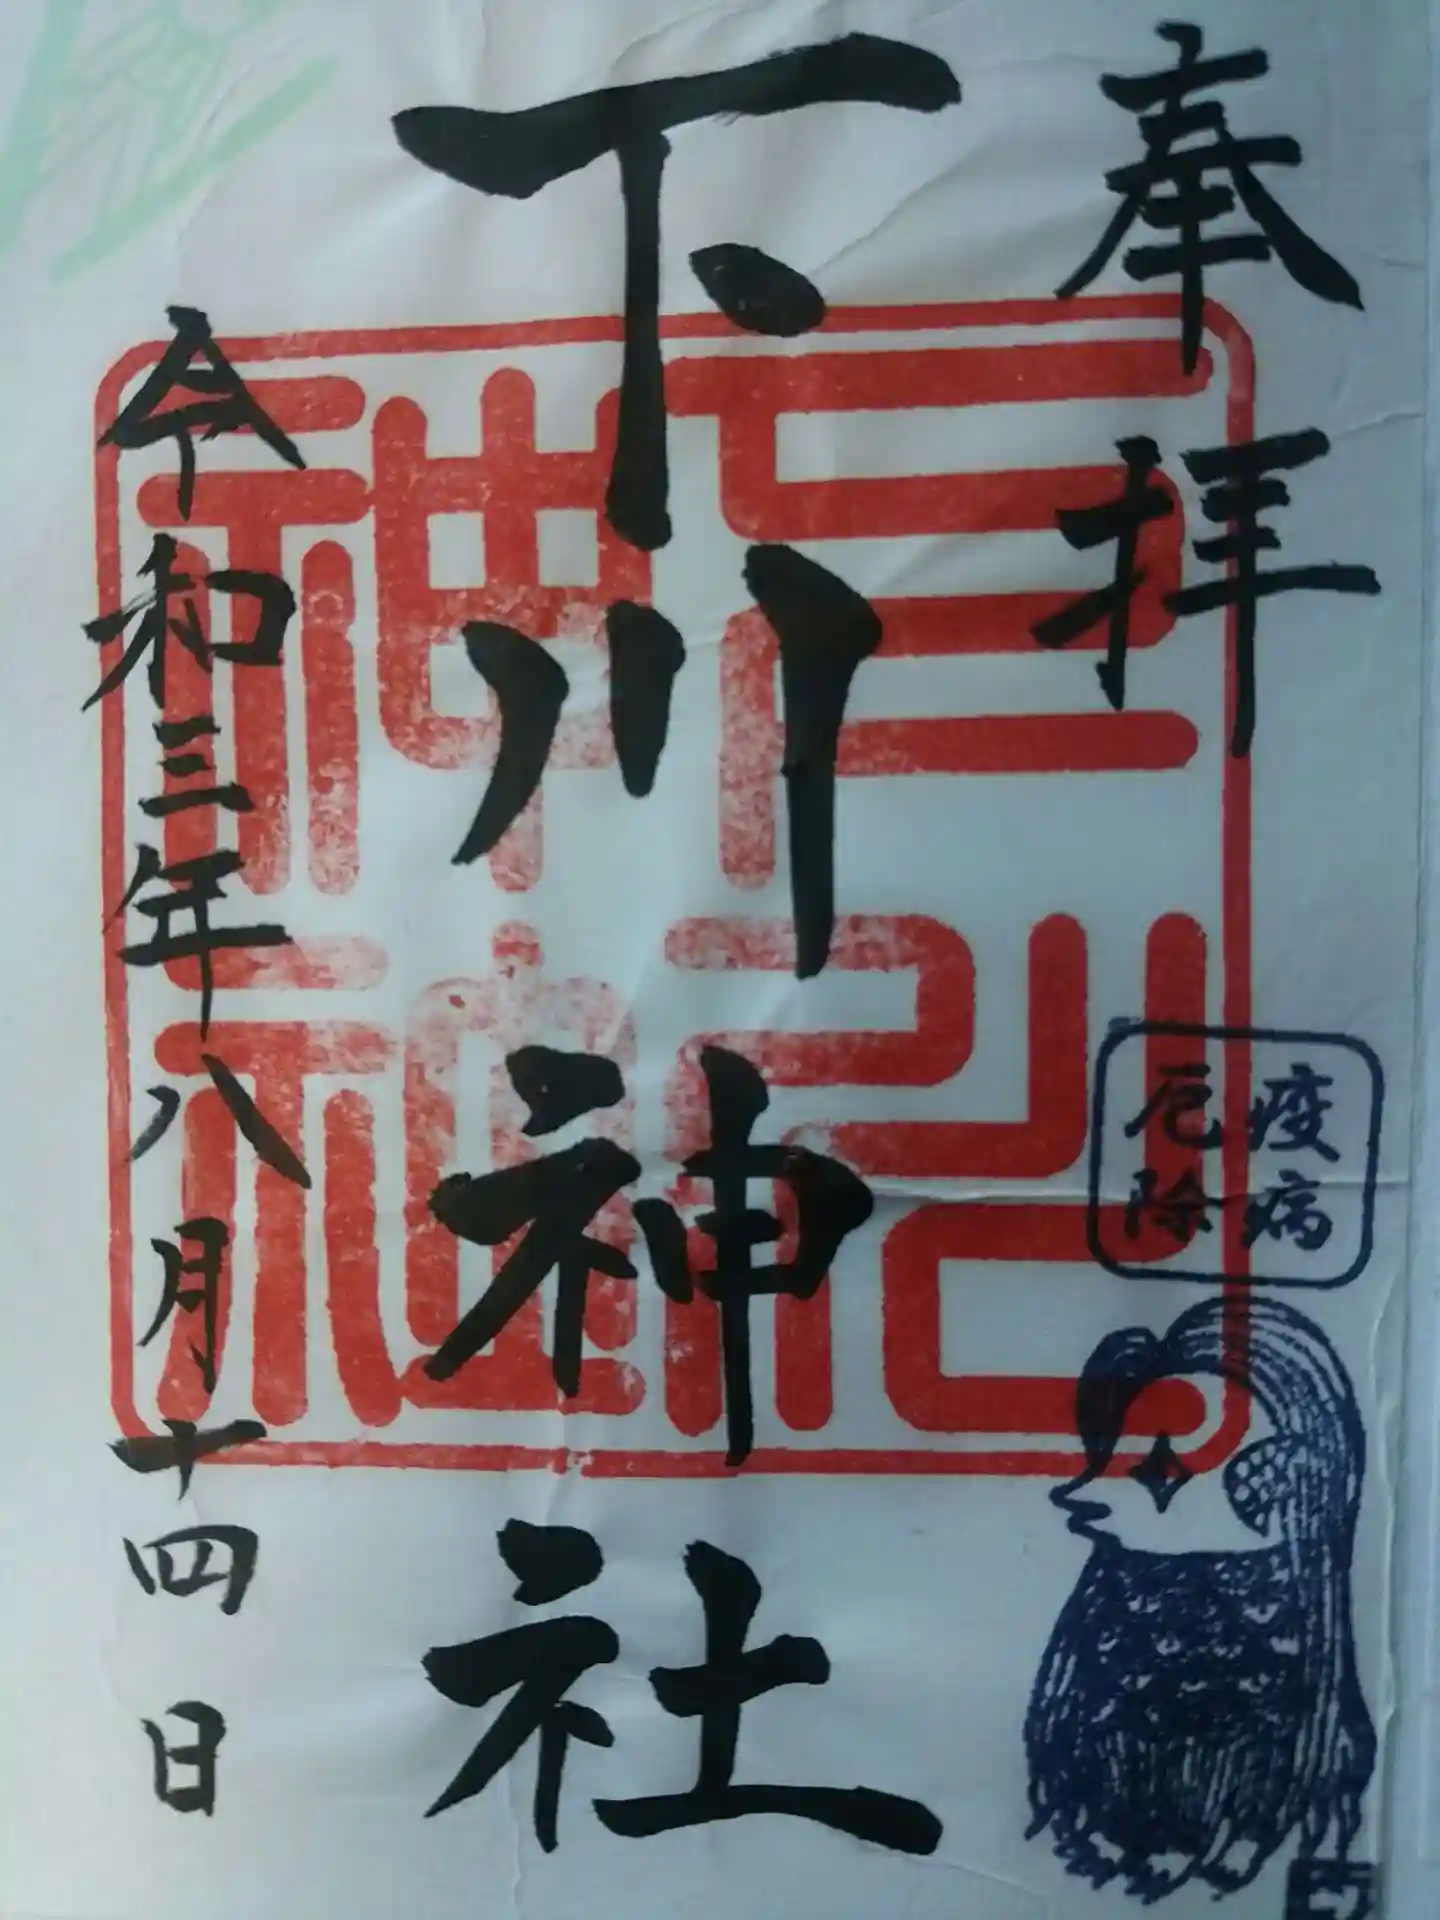 奉拝
疫病
厄除
下川神社
令和三年八月十四日